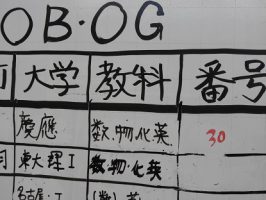 OB・OG
大学 教科 番号
慶應 数・物・化・英 30
東大理I 数・物・化・英
名古屋・工 (数)英